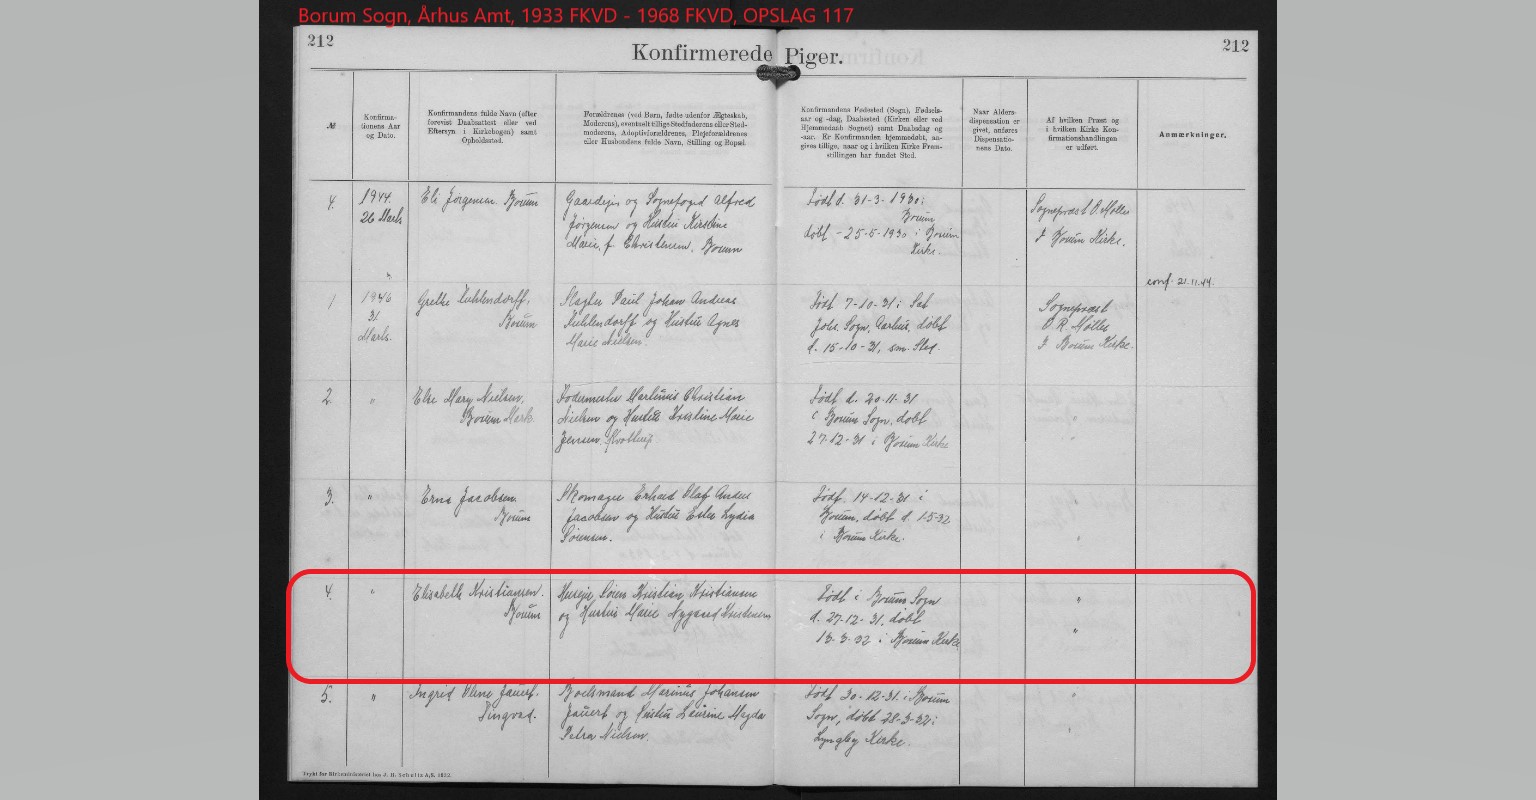 Borum Sogn, Århus Amt, 1933 FKVD - 1968 FKVD, OPSLAG 117
212
Konfirmerede Piger.
212
№
Konfirma-
tionens Aar
og Dato.
Konfirmandens fulde Navn (efter
forevist Daabsattest eller ved
Eftersyn i Kirkebogen) samt
Opholdssted.
Forældrenes (ved Børn, fødte udenfor Ægteskab,
Moderens), eventuelt tillige Stedfaderens eller Sted-
moderens, Adoptivforældrenes, Plejeforældrenes
eller Husbondens fulde Navn, Stilling og Bopæl.
Konfirmandens Fødested (Sogn), Fødsels-
aar og -dag, Daabssted (Kirken eller ved
Hjemmedaab Sognet) samt Daabsdag og
-aar. Er Konfirmanden hjemmedøbt, an-
gives tillige, naar og i hvilken Kirke Frem-
stillingen har fundet Sted.
Naar Alders-
dispensation er
givet, anføres
Dispensatio-
nens Dato.
Af hvilken Præst og
i hvilken Kirke Kon-
firmationshandlingen
er udført.
Anmærkninger.
4.
1944.
26 Marts
Eli Jørgensen. Borum
Gaardejer og Sognefoged Alfred
Jørgensen og Hustru Kirstine
Marie, f. Christensen. Borum
Født d. 31-3-1930 i
Borum
døbt - 25-5-1930 i Borum
Kirke.
Sognepræst O. R. Møller
I Borum Kirke.
conf. 21.11.44.
1
1946
31
Marts.
Grethe Kuhlendorff,
Borum
Slagter Paul Johan Andreas
Kuhlendorff og Hustru Agnes
Marie Nielsen.
Født 7-10-31 i Sct
Johs. Sogn, Aarhus, døbt
d. 15-10-31, sm. Sted.
Sognepræst
O. R. Møller
I Borum Kirke.
2
"
Else Mary Nielsen,
Borum Mark
Fodermester Martinus Christian
Nielsen og Hustru Kristine Marie
Jensen.
Født d. 20-11-31
i Borum Sogn, døbt
27-12-31 i Borum Kirke
"
3.
"
Erna Jacobsen.
Borum
Skomager Erhard Olaf Anders
Jacobsen og Hustru Ester Lydia
Sørensen.
Født 14-12-31 i
Borum, døbt d. 1-5-32
i Borum Kirke.
"
"
4.
"
Elisabeth Kristiansen.
Borum
Husejer Søren Kristian Kristiansen
og Hustru Marie Nygaard Kristensen
Født i Borum Sogn
d. 27-12-31, døbt
13-3-32 i Borum Kirke
"
"
5.
"
Ingrid Jauert.
Boelsmand Marinus Johansen
Jauert og Hustru Laurine Magda
Petra Nielsen.
Født 30-12-31 i Borum
Sogn, døbt 28-3-32 i
Lyngby Kirke.
"
"
Trykt for Kirkeministeriet hos J. H. Schultz A/S. 1932.